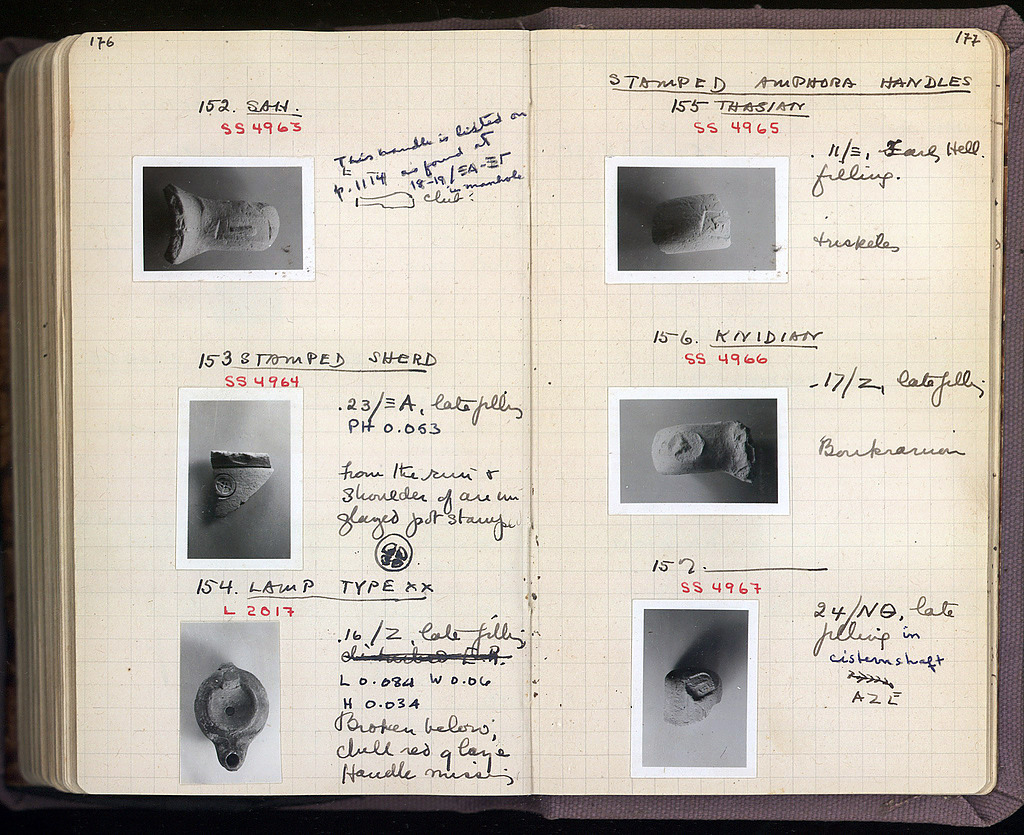 176
152. SAH.
SS 4963
This handle is listed on
p. 1174 as found at
18-19/ΞΑ-ΞΓ
in manhole
club:
153 STAMPED SHERD
SS 4964
.23/ΞA, late filling
PH 0.053
from the rim &
shoulder of an un
glazed pot stamped
154. LAMP TYPE XX
L 2017
.16/Z, late filling
disturbed E.R.
L 0.084 W 0.06
H 0.034
Broken below;
dull red glaze
Handle missing
177
STAMPED AMPHORA HANDLES
155 THASIAN
SS 4965
. 11/Ξ, Early Hell.
filling.
triskeles
156. KNIDIAN
SS 4966
.17/Z, late filling
Boukranion
157.
SS 4967
24/NΘ, late
filling in
cistern shaft